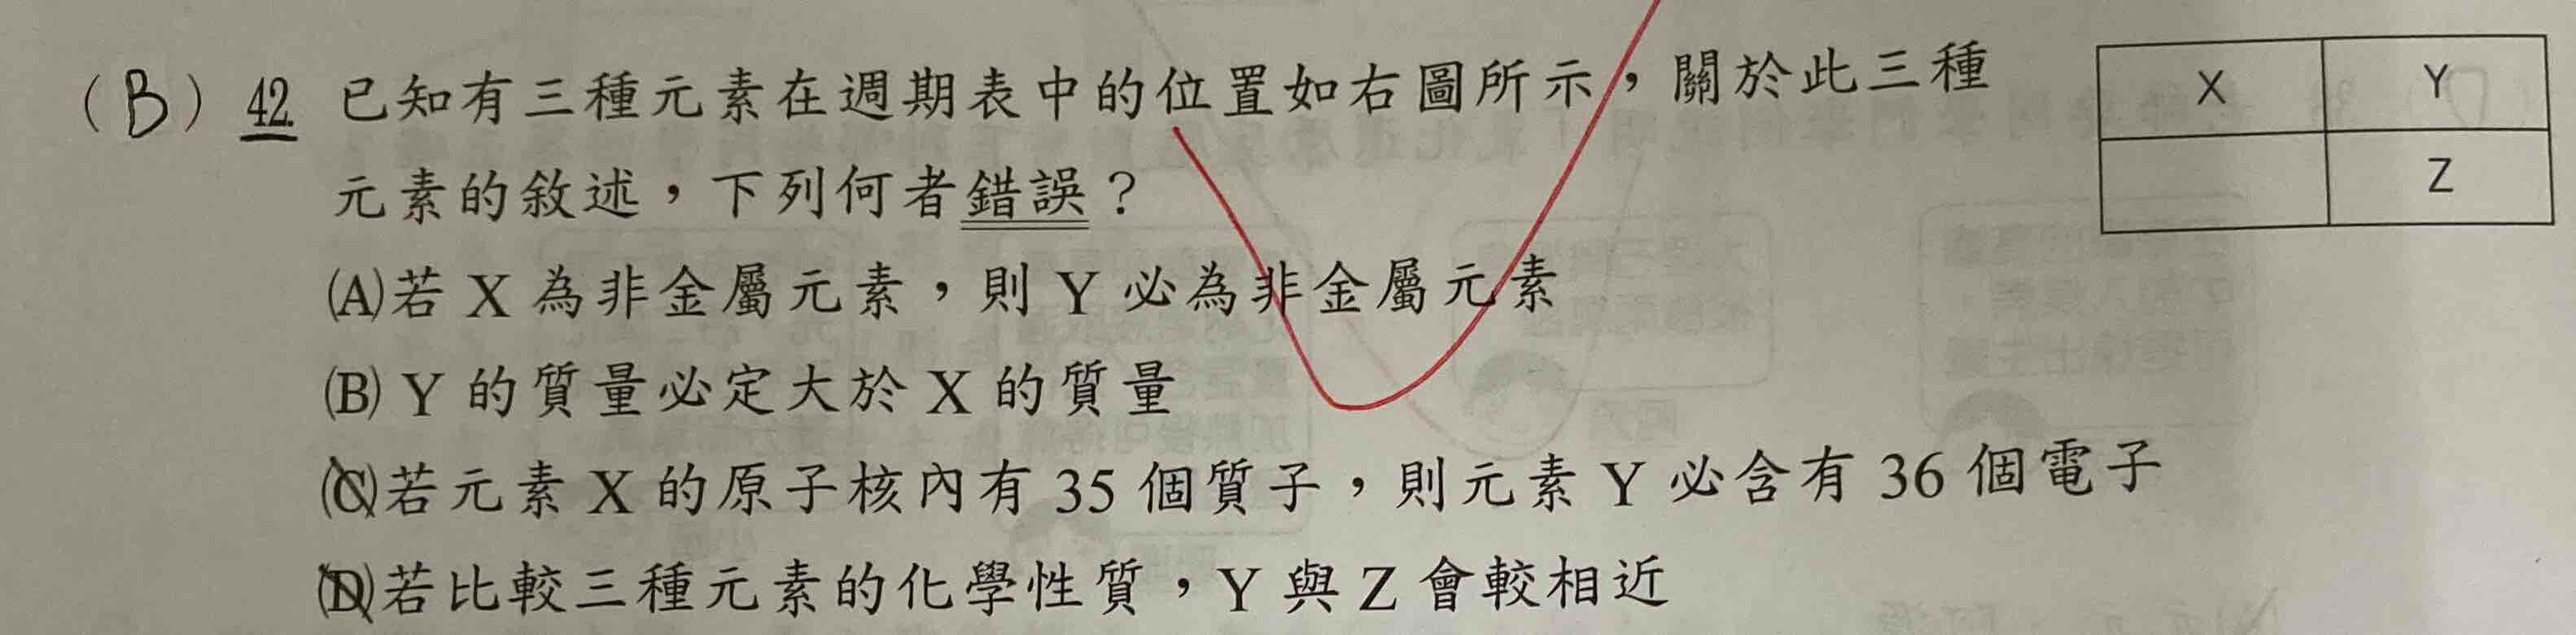 (B) 42. 已知有三種元素在週期表中的位置如右圖所示，關於此三種
元素的敘述，下列何者錯誤？
(A)若 X 為非金屬元素，則 Y 必為非金屬元素
(B) Y 的質量必定大於 X 的質量
(C)若元素 X 的原子核內有 35 個質子，則元素 Y 必含有 36 個電子
(D)若比較三種元素的化學性質，Y 與 Z 會較相近
X Y
Z